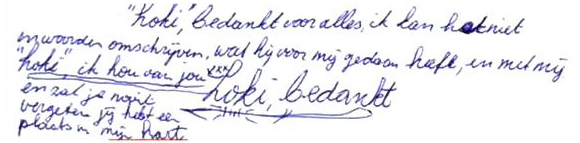 "Koki," bedankt voor alles, ik kan het niet
in woorden omschrijven, wat hij voor mij gedaan heeft, en met mij
"Koki", ik hou van jou xxx
en zal je nooit
vergeten jij hebt een
plaats in mijn hart
Koki, bedankt